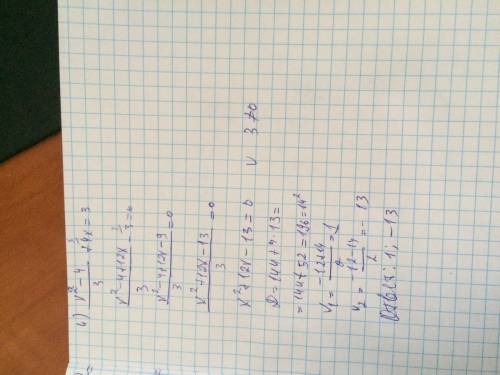 в) (x² - 4)/3 + 4x = 3
(x² - 4 + 12x)/3 - 3 = 0
(x² - 4 + 12x - 9)/3 = 0
(x² + 12x - 13)/3 = 0
x² + 12x - 13 = 0 ∨ 3 ≠ 0
D = 144 + 4·13 =
= 144 + 52 = 196 = 14²
x₁ = (-12+14)/2 = 1
x₂ = (-12-14)/2 = -13
Ответ: 1; -13